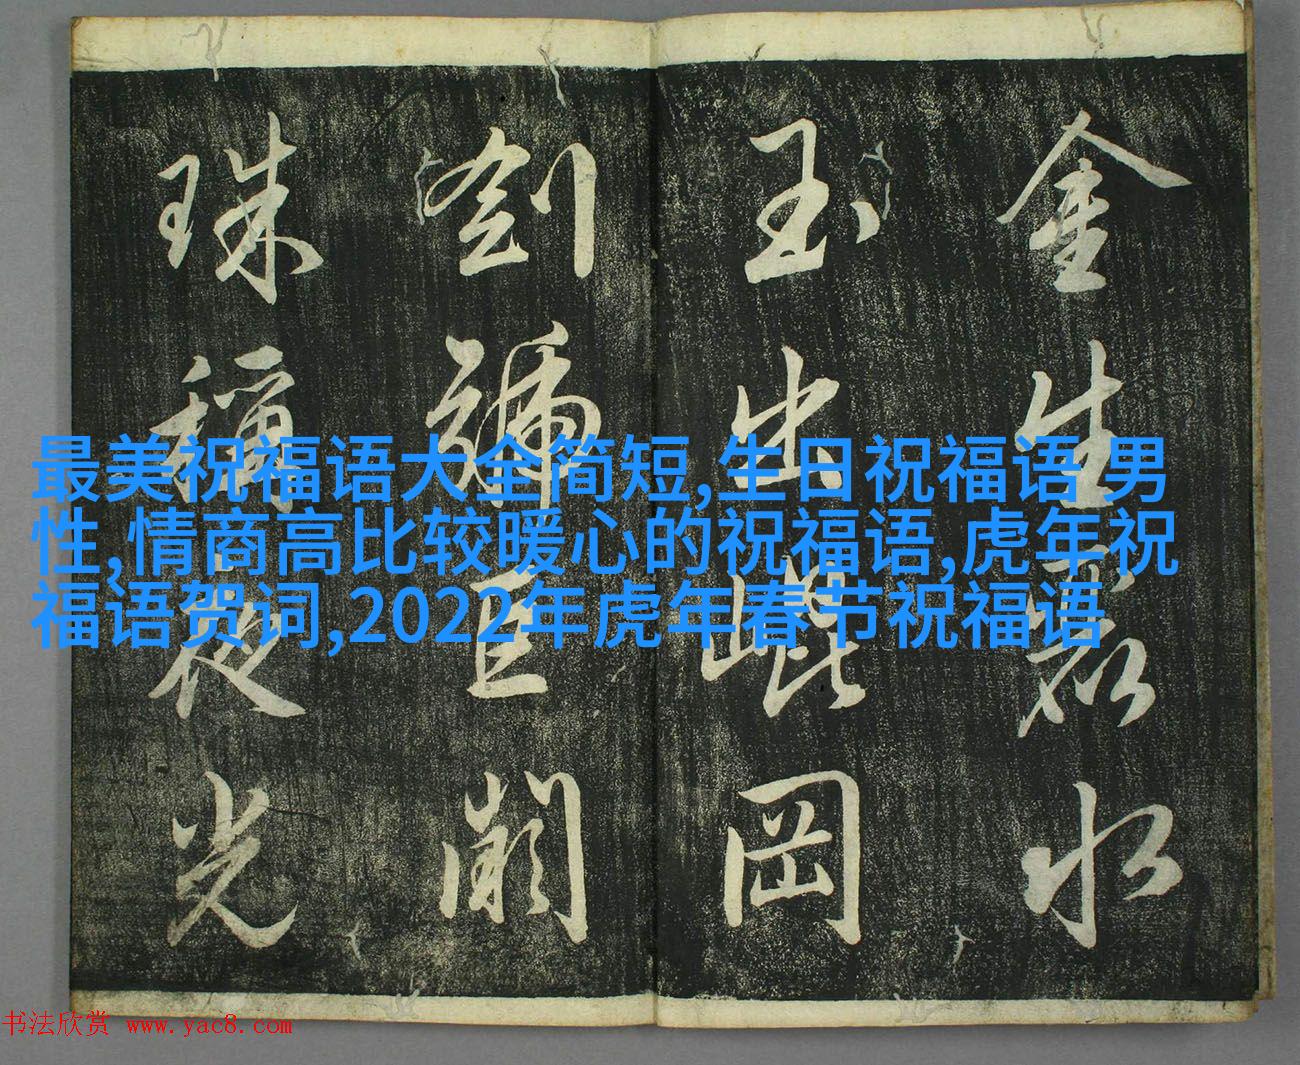 金生麗水
玉出崐岡
劍號巨闕
珠稱夜光
最美祝福语大全简短,生日祝福语 男
性,情商高比较暖心的祝福语,虎年祝
福语贺词,2022年虎年春节祝福语
书法欣赏 www.yac8.com